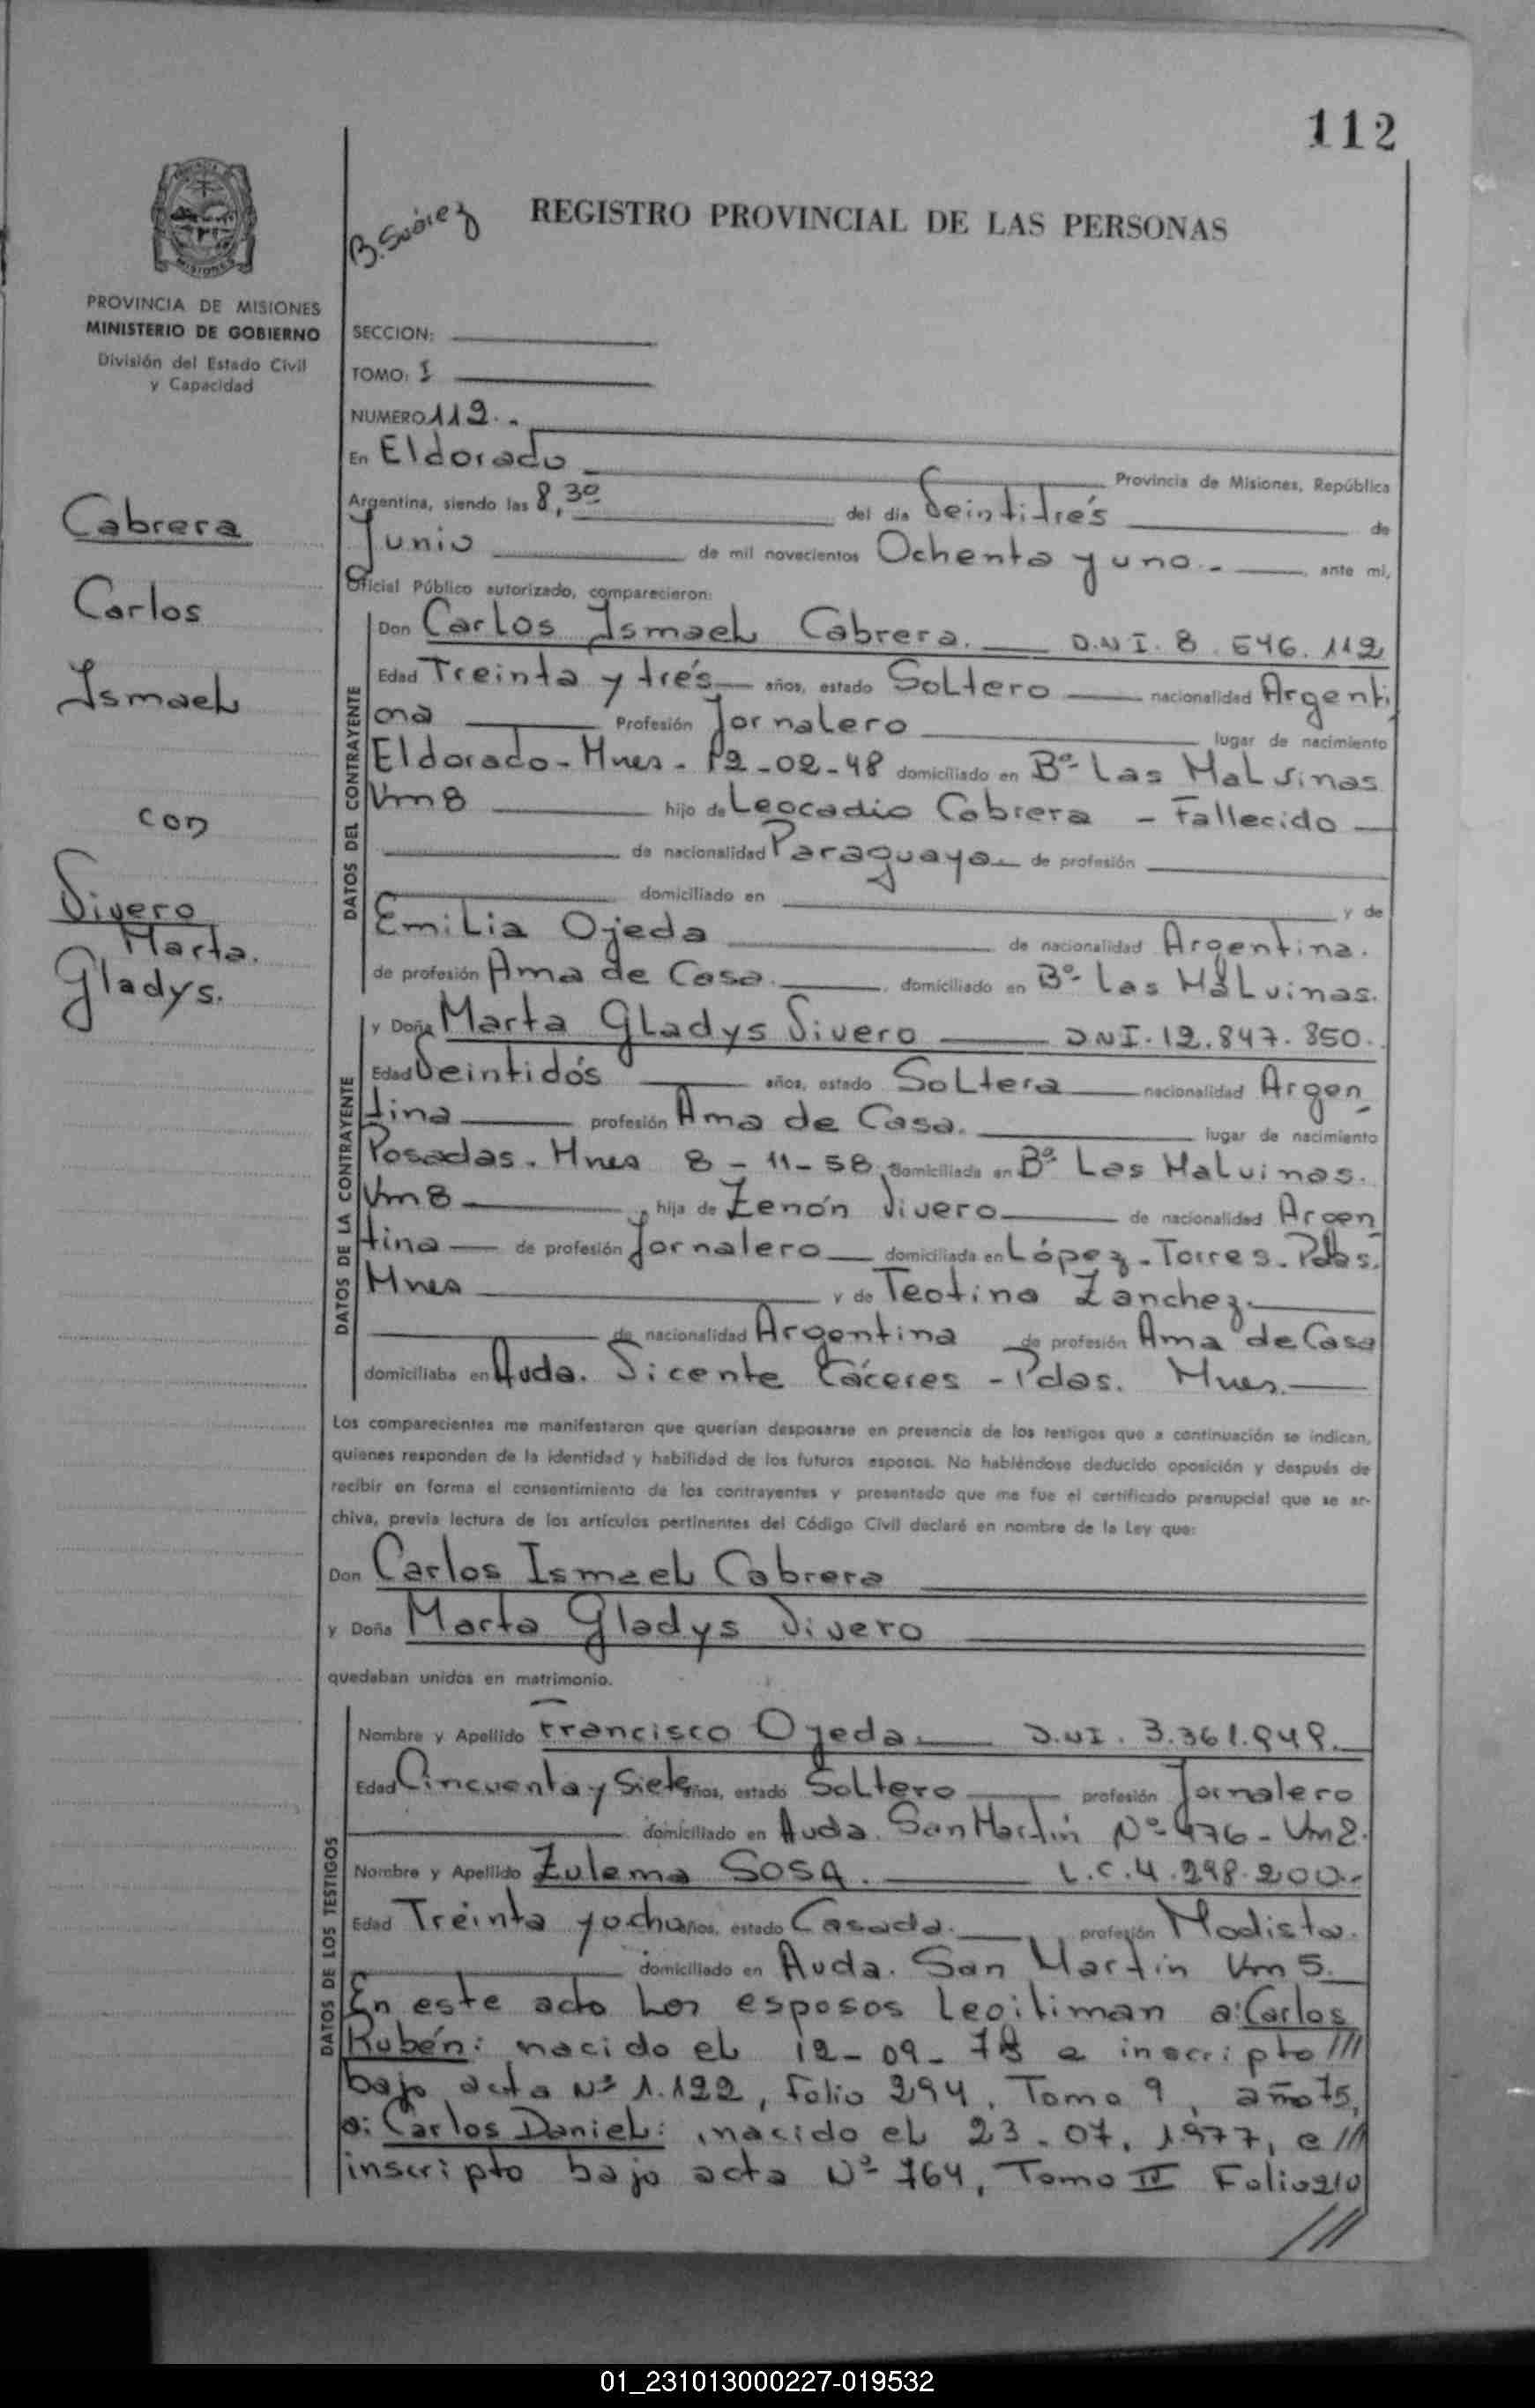 112
B. Suárez
REGISTRO PROVINCIAL DE LAS PERSONAS
MISIONES
PROVINCIA DE MISIONES
MINISTERIO DE GOBIERNO
División del Estado Civil
y Capacidad
SECCION:
TOMO: I
NUMERO 112.-
En Eldorado Provincia de Misiones, República
Argentina, siendo las 8,30 del día Veintitrés de
Junio de mil novecientos Ochenta y uno.- ante mi,
Oficial Público autorizado, comparecieron:
Cabrera
Carlos
Ismael
con
Vivero
Marta.
Gladys.
DATOS DEL CONTRAYENTE
Don Carlos Ismael Cabrera. D.N.I. 8.546.112
Edad Treinta y trés años, estado Soltero nacionalidad Argenti
na Profesión Jornalero lugar de nacimiento
Eldorado - Mnes - 12-02-48 domiciliado en Bº Las Malvinas
Km 8 hijo de Leocadio Cabrera - Fallecido
de nacionalidad Paraguaya de profesión
domiciliado en y de
Emilia Ojeda de nacionalidad Argentina.
de profesión Ama de Casa. domiciliado en Bº Las Malvinas.
DATOS DE LA CONTRAYENTE
y Doña Marta Gladys Vivero D.N.I. 12.847.850.
Edad Veintidós años, estado Soltera nacionalidad Argen
tina profesión Ama de Casa. lugar de nacimiento
Posadas. Mnes 8-11-58 domiciliada en Bº Las Malvinas.
Km 8 hija de Zenón Vivero de nacionalidad Argen
tina de profesión Jornalero domiciliada en López - Torres - Pdas.
Mnes y de Teotina Zanchez.
de nacionalidad Argentina de profesión Ama de Casa
domiciliaba en Avda. Vicente Cáceres - Pdas. Mnes.
Los comparecientes me manifestaron que querían desposarse en presencia de los testigos que a continuación se indican,
quienes responden de la identidad y habilidad de los futuros esposos. No habiéndose deducido oposición y después de
recibir en forma el consentimiento de los contrayentes y presentado que me fue el certificado prenupcial que se ar-
chiva, previa lectura de los artículos pertinentes del Código Civil declaré en nombre de la Ley que:
Don Carlos Ismael Cabrera
y Doña Marta Gladys Vivero
quedaban unidos en matrimonio.
DATOS DE LOS TESTIGOS
Nombre y Apellido Francisco Ojeda D.N.I. 3.361.949.
Edad Cincuenta y Siete años, estado Soltero profesión Jornalero
domiciliado en Avda. San Martín Nº 476 - Km 2.
Nombre y Apellido Zulema Sosa. L.C. 4.298.200.-
Edad Treinta y ocho años, estado Casada. profesión Modista.
domiciliado en Avda. San Martín Km 5.
En este acto Los esposos Legitiman a: Carlos
Rubén: nacido el 12-09-75 e inscripto ///
bajo acta Nº 1.122, Folio 294, Tomo 9, año 75,
a: Carlos Daniel: nacido el 23.07.1977, e ///
inscripto bajo acta Nº 764, Tomo IV Folio 210
///
01_231013000227-019532